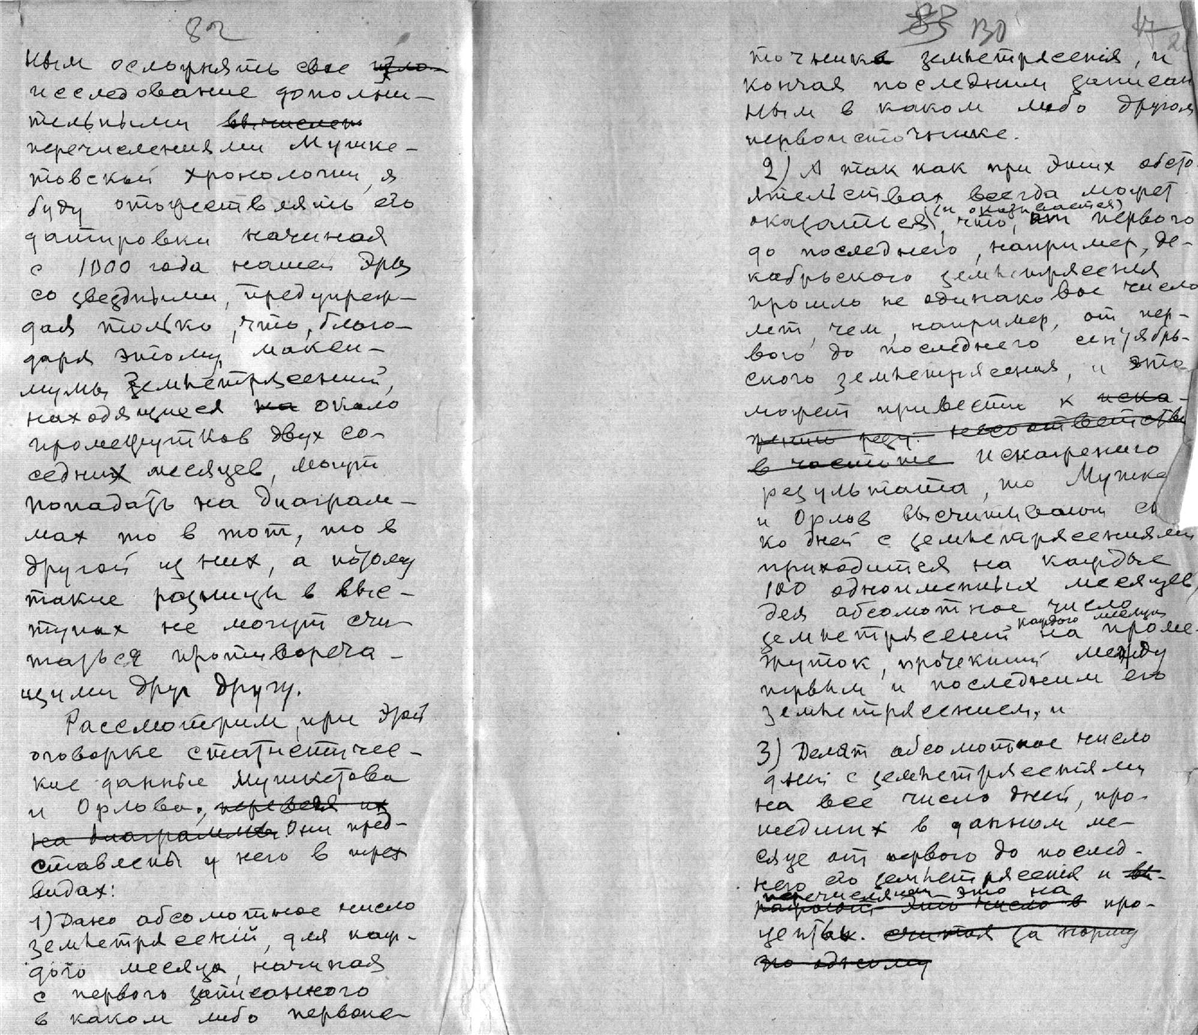 82
ным осложнять свое изло-
исследование дополни-
тельными вычислен
перечислениями Мушке-
товской хронологии, я
буду отожествлять его
датировки начиная
с 1000 года нашей эры
со звездными, предупреж-
дая только, что, благо-
даря этому, макси-
мумы землетрясений,
находящиеся на около
промежутков двух со-
седних месяцев, могут
попадать на диаграм-
мах то в тот, то в
другой из них, а потому
такие разницы в выс-
тупах не могут счи-
таться противореча-
щими друг другу.
Рассмотрим, при этой
оговорке статистичес-
кие данные Мушкетова
и Орлова, переведя их
на диаграммы. Они пред-
ставлены у него в трех
видах:
1) Дано абсолютное число
землетрясений, для каж-
дого месяца, начиная
с первого записанного
в каком либо первоис-
83 130
точника землетрясения, и
кончая последним записан
ным в каком либо другом
первоисточнике.
2) А так как при этих обсто
ятельствах всегда может
оказаться (и оказывается), что, от первого
до последнего, например, де-
кабрьского землетрясения
прошло не одинаковое число
лет, чем, например, от пер-
вого до последнего сентябрь-
ского землетрясения, и это
может привести к иска-
жению резу. несоответстви
в частоте искаженного
результата, то Мушке
и Орлов высчитывали ск
ко дней с землетрясениями
приходится на каждые
100 одноименных месяцев,
деля абсолютное число
землетрясений каждого месяца на проме-
жуток, протекший между
первым и последним его
землетрясением, и
3) Делят абсолютное число
дней с землетрясениями
на все число дней, про-
шедших в данном ме-
сяце от первого до послед-
него его землетрясения и вы-
перечисляли это на
число в про-
центах. считая за норму
по одному